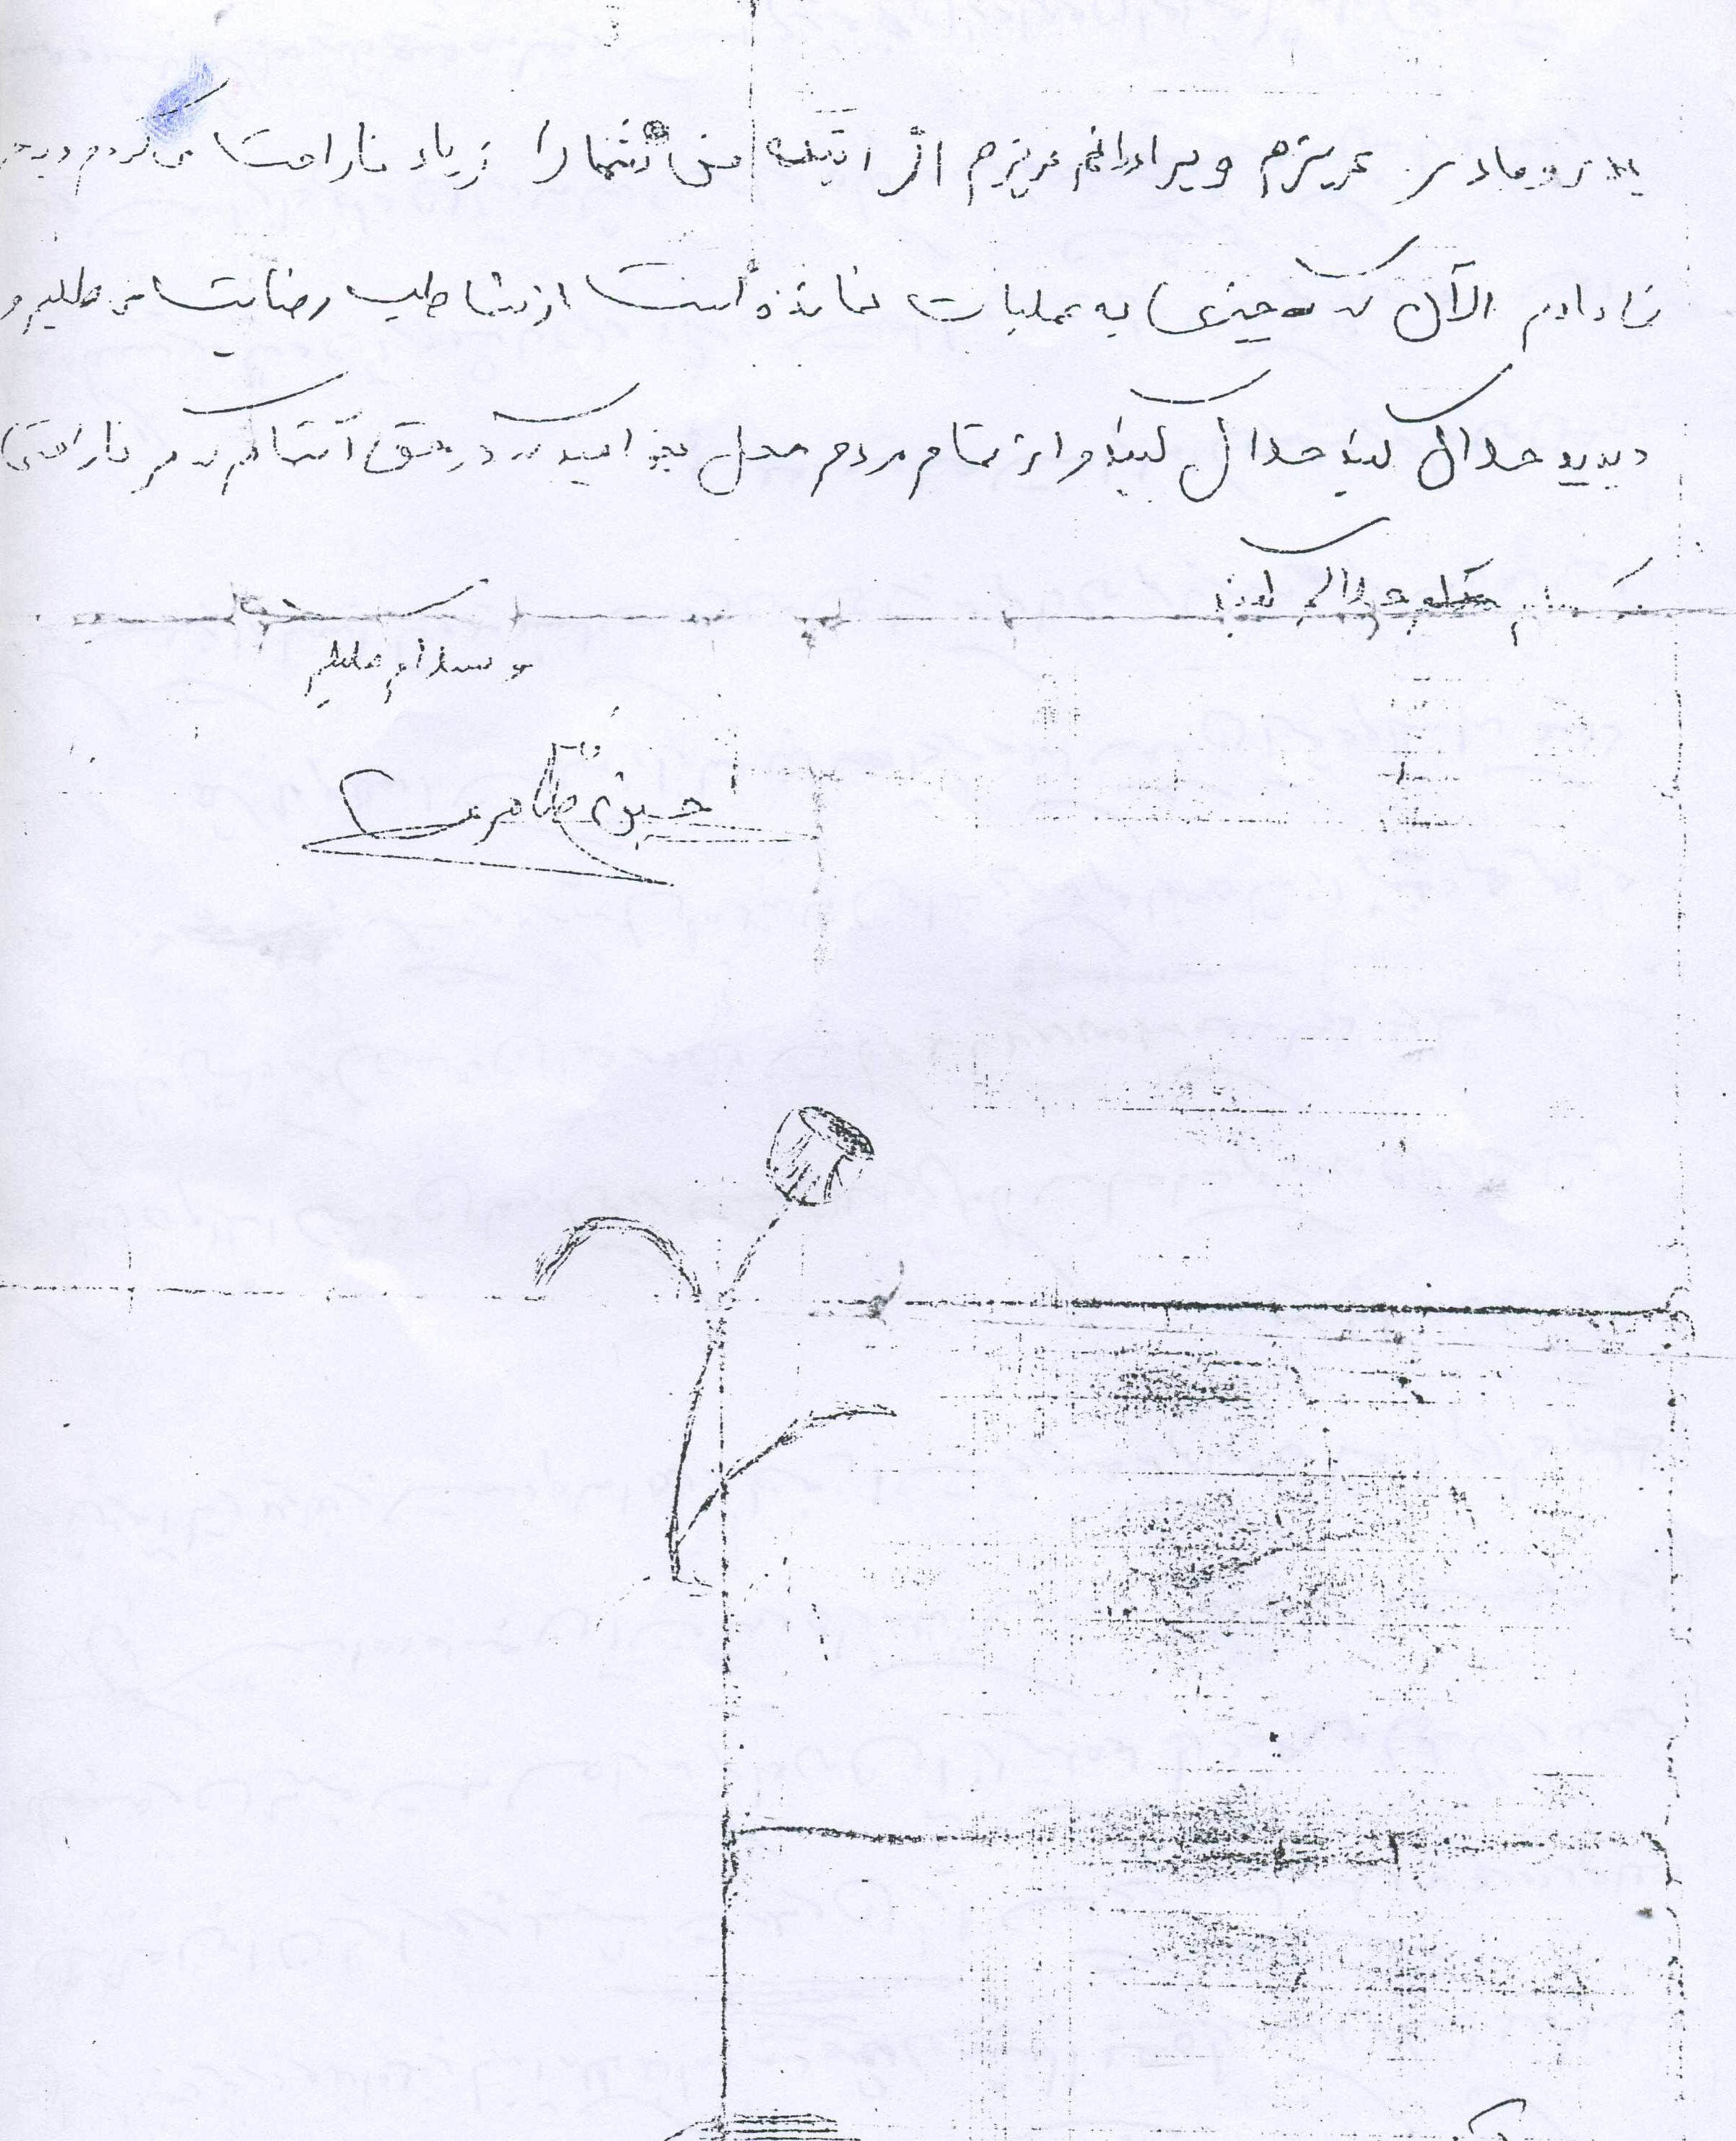 پدر و مادر عزیزم و برادرانم عزیزم از اینکه من شما را زیاد ناراحت می کردم
الآن که چیزی به عملیات نمانده است از شما طلب رضایت می طلبم و
دیدید حلال کنید حلال کنید و از تمام مردم محل که در حق آنها کردم ناراحتی
حلالم کنید
و سلام علیکم
حسین طاهری